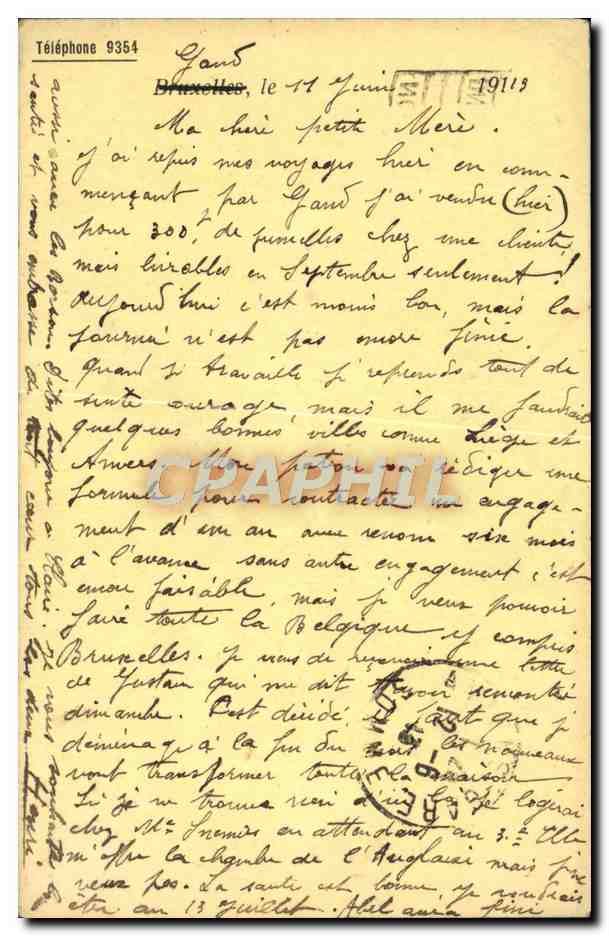 Téléphone 9354
Gand
Bruxelles, le 11 Juin 1913
Ma chère petite Mère.
J'ai repris mes voyages hier en com-
mençant par Gand j'ai vendu (hier)
pour 300f de jumelles chez une cliente
mais livrables en Septembre seulement!
Aujourd'hui c'est moins bon, mais la
journée n'est pas encore finie.
Quand je travaille je reprends tout de
suite courage, mais il me faudrait
quelques bonnes villes comme Liège et
Anvers. Mon patron va rédiger une
formule pour contracter un engage-
ment d'un an avec renom six mois
à l'avance sans autre engagement c'est
encore faisable, mais je veux pouvoir
faire toute la Belgique y compris
Bruxelles. Je viens de recevoir une lettre
de Gustave qui me dit t'avoir rencontrée
dimanche. C'est décidé, il faut que je
déménage à la fin du mois les nouveaux
vont transformer toute la maison
Si je ne trouve rien d'ici là je logerai
chez Me en attendant au 3e Elle
m'offre la chambre de l'Anglaise mais je ne
veux pas. La santé est bonne je voudrais
être au 13 Juillet. Abel aura fini
aussi avec les Dites bonjour à Claire. Je vous souhaite la
santé et vous embrasse de tout coeur tous les deux Henri
CPAPHIL